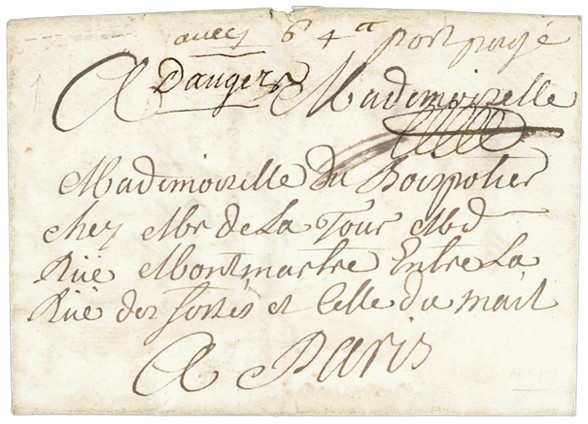 avec 6 4tt port payé
A Dangers Mademoiselle
Mademoiselle Du Boispotier
chez Mr de La Tour Md
Rüe Montmartre Entre La
Rüe des fossés et Celle du mail
A Paris